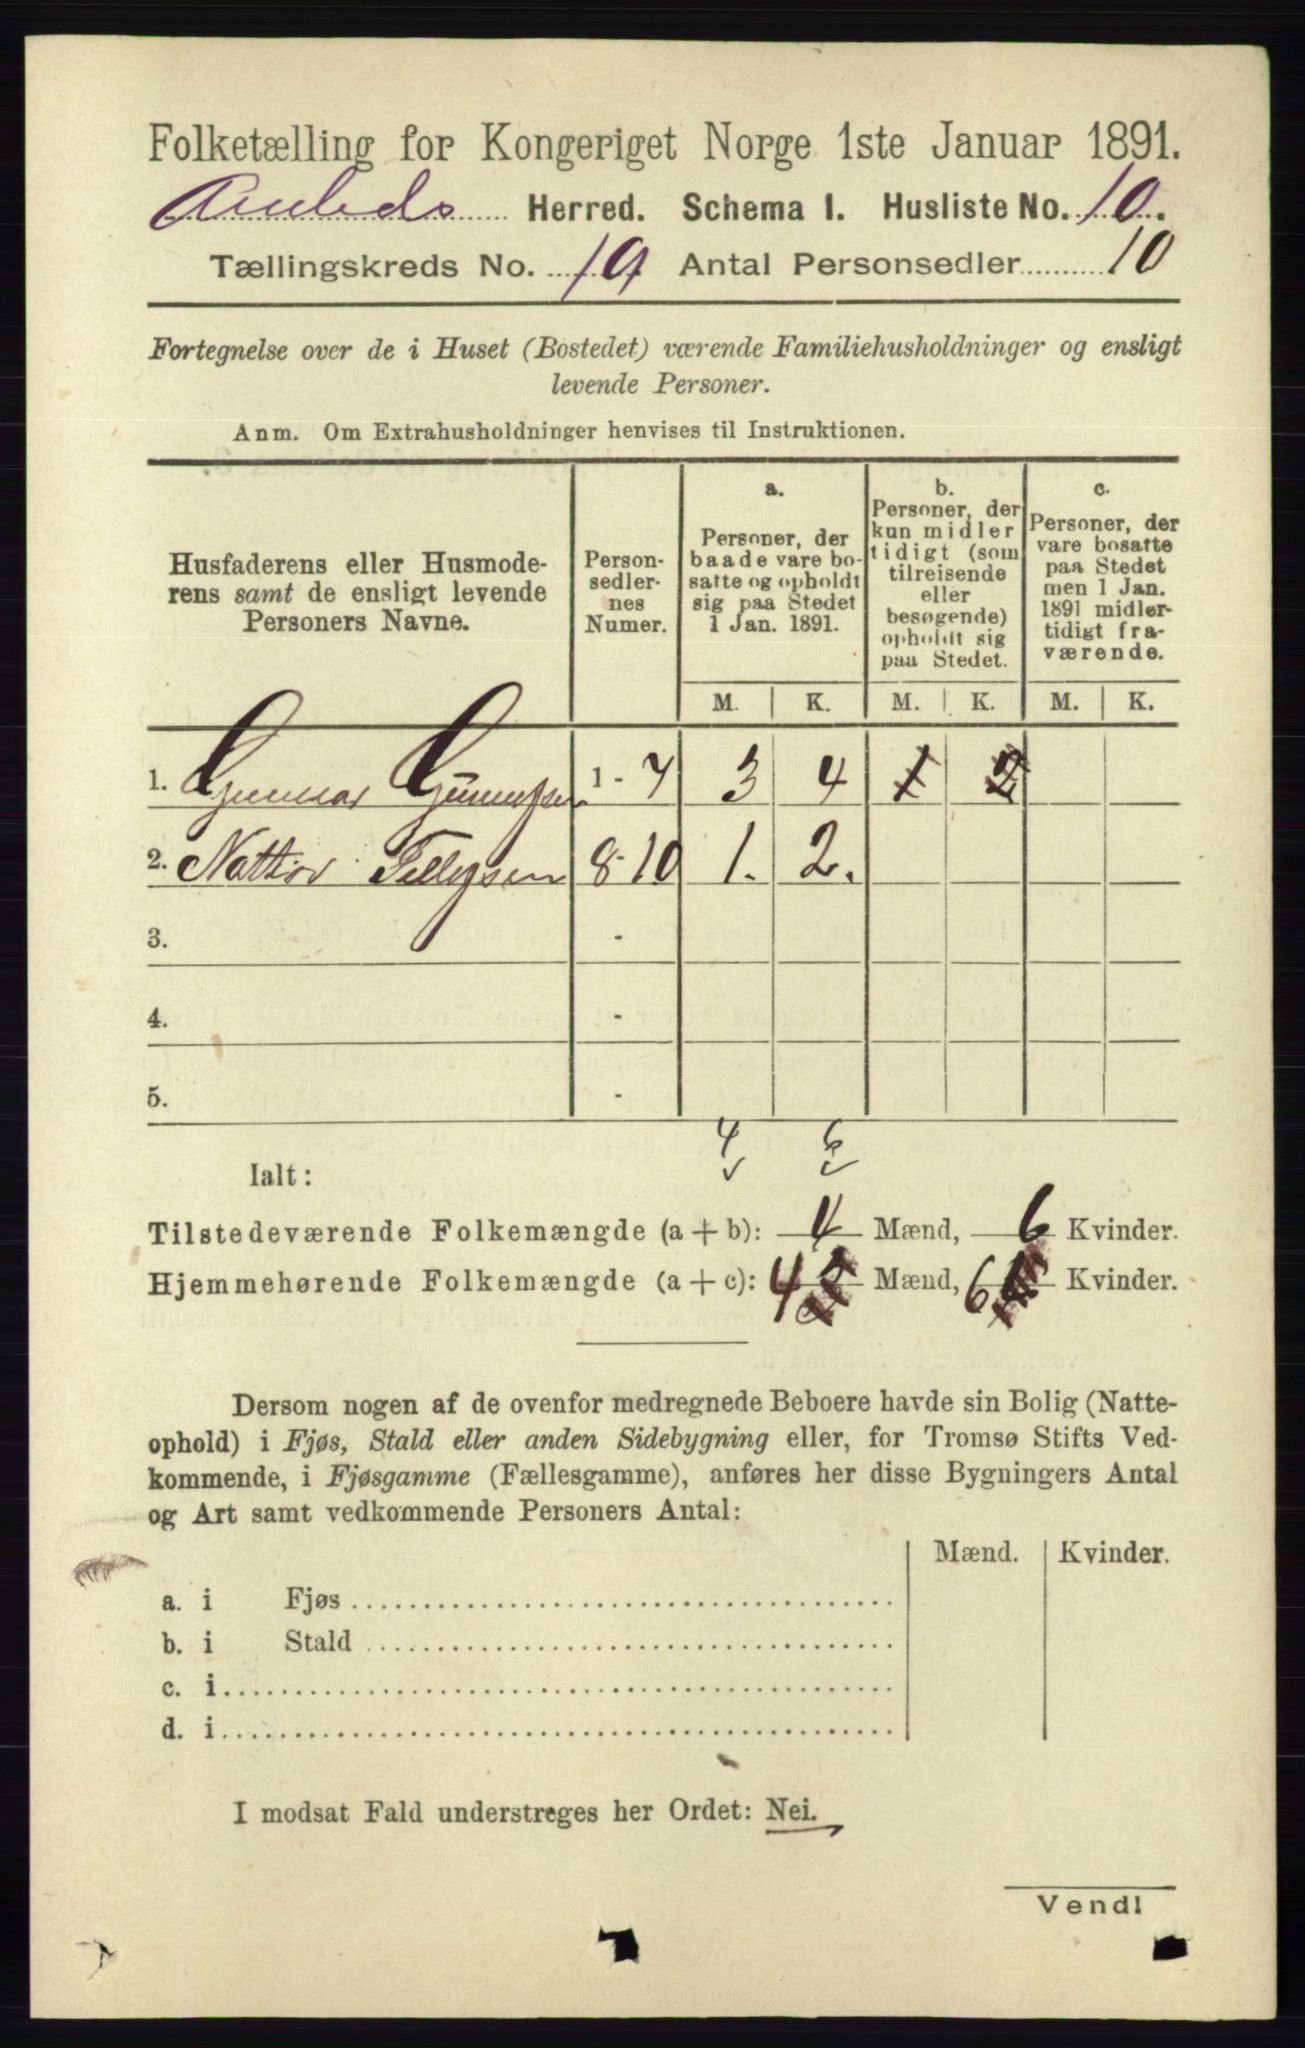 Folketælling for Kongeriget Norge 1ste Januar 1891.
Herred. Schema I. Husliste No. 10.
Tællingskreds No. 19 Antal Personsedler 10
Fortegnelse over de i Huset (Bostedet) værende Familiehusholdninger og ensligt
levende Personer.
Anm. Om Extrahusholdninger henvises til Instruktionen.
Husfaderens eller Husmode-
rens samt de ensligt levende
Personers Navne.
Person-
sedler-
nes
Numer.
a.
Personer, der
baade vare bo-
satte og opholdt
sig paa Stedet
1 Jan. 1891.
b.
Personer, der
kun midler
tidigt (som
tilreisende
eller
besøgende)
opholdt sig
paa Stedet.
c.
Personer, der
vare bosatte
paa Stedet
men 1 Jan.
1891 midler-
tidigt fra-
værende.
M. K. M. K. M. K.
1. Gunnar 1 - 7 3 4 1 2
2. 8-10 1. 2.
3. -
4. -
5. -
4 6
Ialt:
Tilstedeværende Folkemængde (a + b): 4 Mænd, 6 Kvinder.
Hjemmehørende Folkemængde (a + c): 4 Mænd, 6 Kvinder.
Dersom nogen af de ovenfor medregnede Beboere havde sin Bolig (Natte-
ophold) i Fjøs, Stald eller anden Sidebygning eller, for Tromsø Stifts Ved-
kommende, i Fjøsgamme (Fællesgamme), anføres her disse Bygningers Antal
og Art samt vedkommende Personers Antal:
Mænd. Kvinder.
a. i Fjøs
b. i Stald
c. i
d. i
I modsat Fald understreges her Ordet: Nei.
Vendl